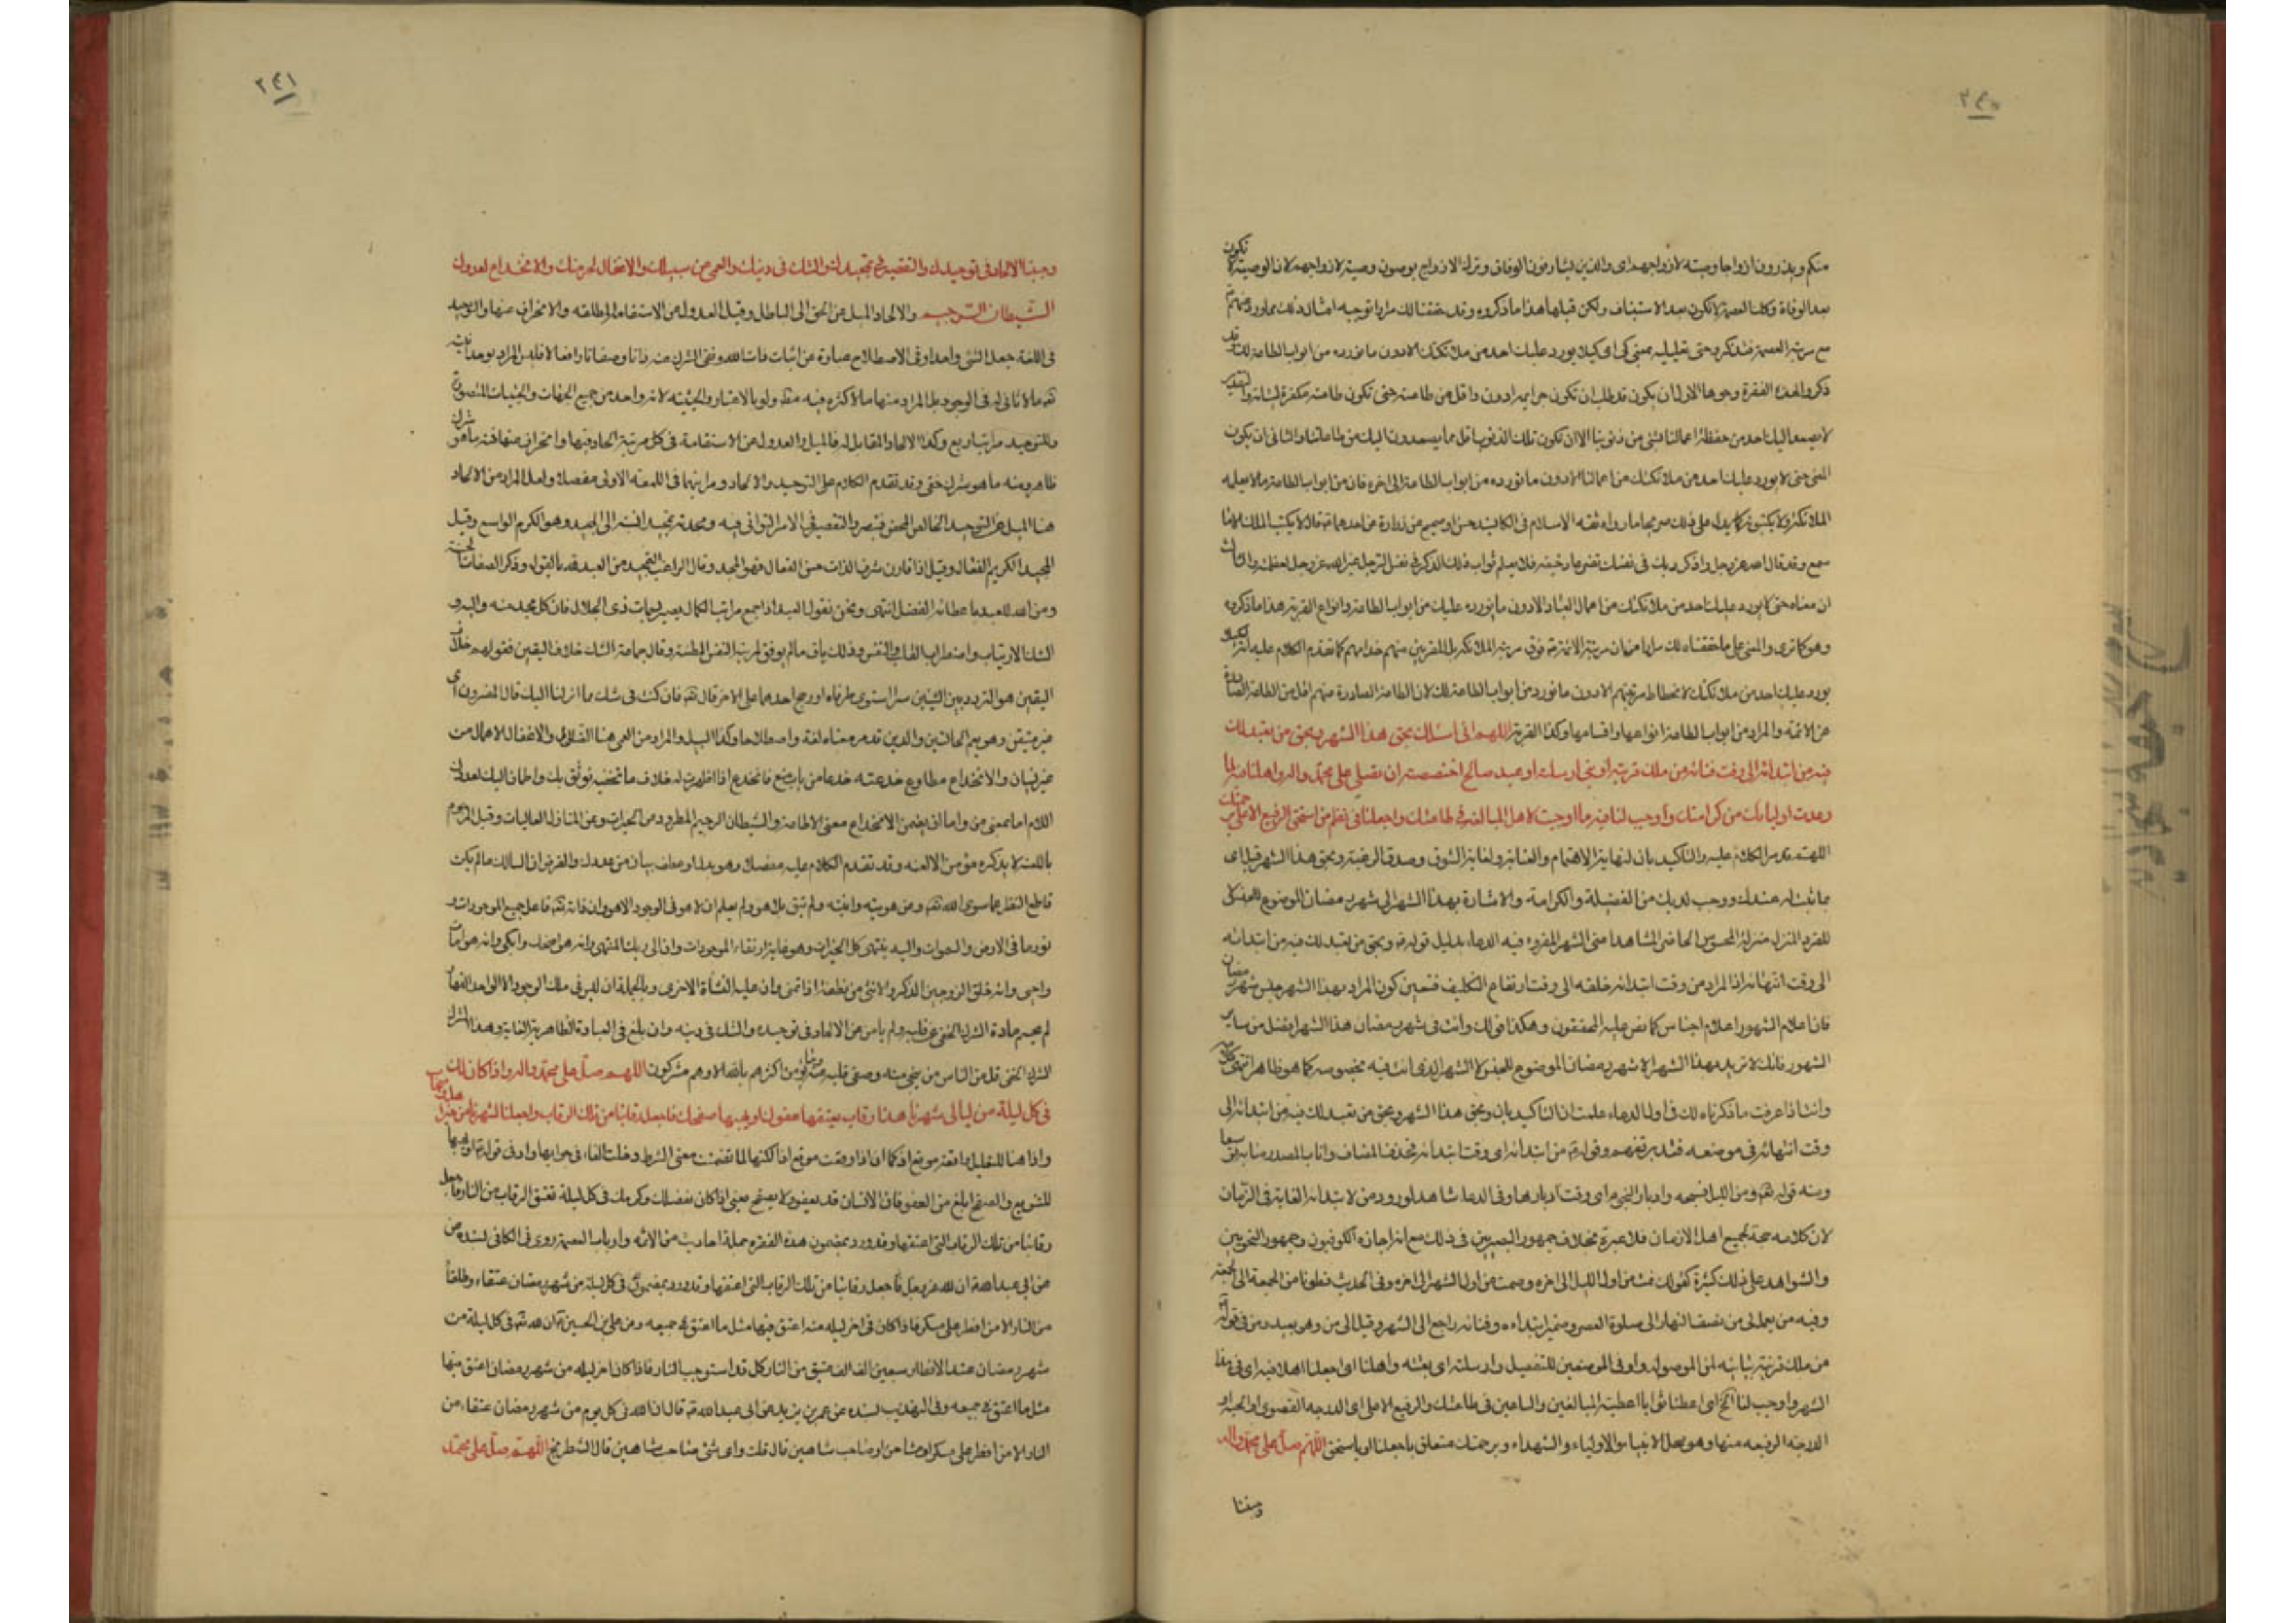 ٢٤٠
منكم ويذرون ازواجا وصية لازواجهم اى والذين يشارفون الوفاة وترك الازواج يوصون وصية لازواجهم لان الوصية لا تكون
بعد الوفاة وكلنا العصمة لا تكون بعد الاستيناف ولكن قبلها هذا ما ذكروه وقد حققنا لك مرارا توجيه امثال ذلك مما ورد منهم
مع مرتبة العصمة فتذكر وحتى تعليلية بمعنى كى اى كيلا يورد عليك احد من ملائكتك الا دون ما نورده من ابواب الطاعة لك وقد
ذكروا لهذه الفقرة وجوها الاول ان يكون قد طلب ان تكون جرايمه ادون واقل من طاعته حتى تكون طاعته مكفرة لسيئاته والتقدير
لا يصعد اليك احد من حفظة اعمالنا بشئ من ذنوبنا الا ان تكون تلك الذنوب اقل مما يصعدون اليك من طاعاتنا والثانى ان يكون
المعنى حتى لا يورد عليك احد من ملائكتك من اعمالنا الا دون ما نورده من ابواب الطاعة الى اخره فان من ابواب الطاعة ما لا يعلمه
الملائكة ولا يكتبونه كما يدل على ذلك صريحا ما رواه ثقة الاسلام فى الكافى بسند حسن او صحيح عن زرارة عن احدهما ع قال لا يكتب الملك الا ما
سمع وقد قال الله عز وجل واذكر ربك فى نفسك تضرعا وخيفة فلا يعلم ثواب ذلك الذكر فى نفس الرجل غير الله عز وجل لعظمته والثالث
ان معناه حتى لا يورد عليك احد من ملائكتك من اعمال العباد الا دون ما نورده عليك من ابواب الطاعة وانواع القربة هذا ما ذكروه
وهو كما ترى والمعنى على ما حققناه لك مرارا من ان مرتبة الائمة ع فوق مرتبة الملائكة بل المقربين منهم خدامهم كما تقدم الكلام عليه انه لا
يورد عليك احد من ملائكتك لانحطاط مرتبتهم الا دون ما نورد من ابواب الطاعة لك لان الطاعة الصادرة منهم اقل من الطاعة الصادرة
عن الائمة والمراد من ابواب الطاعة انواعها واقسامها وكذا القربة اللهم انى اسئلك بحق هذا الشهر وبحق من تعبد لك
فيه من ابتدائه الى وقت فنائه من ملك قربته او نبى ارسلته او عبد صالح اختصصته ان تصلى على محمد واله واهلنا فيه لما
وعدت اوليائك من كرامتك واوجب لنا فيه ما اوجبت لاهل المبالغة فى طاعتك واجعلنا فى نظم من استحق الرفيع الاعلى برحمتك
اللهم تقدم الكلام عليه والتاكيد بان لنهاية الاهتمام والعناية ولغاية الشوق وصدق الرغبة وبحق هذا الشهر قيل اى
بما ثبت له عندك ووجب لديك من الفضيلة والكرامة والاشارة بهذا الشهر الى شهر رمضان الموضوع للجنس لا
للفرد المنزل منزلة المحسوس الحاضر المشاهد اعنى الشهر المقروء فيه الدعاء بدليل قوله ع وبحق من تعبد لك فيه من ابتدائه
الى وقت انتهائه اذ المراد من وقت ابتداء خلقه الى وقت ارتفاع التكليف فتعين كون المراد بهذا الشهر جنس شهر رمضان
فان اعلام الشهور اعلام اجناس كما نص عليه المحققون وهكذا قولك وانت فى شهر رمضان هذا الشهر افضل من ساير
الشهور فانك لا تريد بهذا الشهر الا شهر رمضان الموضوع للجنس لا الشهر الذى انت فيه بخصوصه كما هو ظاهر انتهى كلامه
وانت اذا عرفت ما ذكرناه لك فى اول الدعاء علمت ان التاكيد بان وبحق هذا الشهر وبحق من تعبد لك فيه من ابتدائه الى
وقت انتهائه فى موضعه فتدبر تفهم وقوله ع من ابتدائه اى وقت ابتدائه فحذف المضاف واناب المصدر منابه توسعا
ومنه قوله تعالى ومن الليل فسبحه وادبار النجوم اى وقت ادبارها وفى الدعا شاهد لورود من لابتداء الغاية فى الزمان
لان كلامه حجة لجميع اهل الازمان فلا عبرة بخلاف جمهور البصريين فى ذلك مع انه اجازه الكوفيون وجمهور النحويين
والشواهد على ذلك كثيرة كقولك قمت من اول الليل الى اخره وصمت من اول الشهر الى اخره وفى الحديث فمطرنا من الجمعة الى الجمعة
وفيه من يعمل لى من نصف النهار الى صلوة العصر وضمير ابتدائه وفنائه راجع الى الشهر وقيل الى من وهو بعيد ومن فى قوله
من ملك قربته بيانية لمن الموصولة واو فى الموضعين للتفصيل وارسلته اى بعثته واهلنا اى اجعلنا اهلا فيه اى فى هذا
الشهر واوجب لنا الخ اى اعطنا ثوابا اعطيته المبالغين والساعين فى طاعتك والرفيع الاعلى اى الدرجة القصوى او الجنة او
الدرجة الرفيعة منها وهو محل الانبياء والاولياء والشهداء وبرحمتك متعلق باجعلنا او باستحق اللهم صل على محمد واله
وجنبنا
٢٤١
وجنبنا الالحاد فى توحيدك والتقصير فى تمجيدك والشك فى دينك والعمى عن سبيلك والاغفال لحرمتك والانخداع لعدوك
الشيطان الرجيم والالحاد الميل عن الحق الى الباطل وقيل العدول عن الاستقامة المطلقة والانحراف عنها والتوحيد
فى اللغة جعل الشئ واحدا وفى الاصطلاح عبارة عن اثبات ذات الله ونفى الشرك عنه ذاتا وصفاتا وافعالا فليس المراد بوحدانيته
تعالى ما لا ثانى له فى الوجود بل المراد منها ما لا كثرة فيه مطلقا ولو بالاعتبار والحيثية لانه واحد من جميع الجهات والحيثيات المتصورة
وللتوحيد مراتب اربع وكذا الالحاد المقابل له فالميل والعدول عن الاستقامة فى كل مرتبة الحاد فيها وانحراف عنها فمنه ما هو شرك
ظاهر ومنه ما هو شرك خفى وقد تقدم الكلام على التوحيد والالحاد ومراتبهما فى اللمعة الاولى مفصلا ولعل المراد من الالحاد
هنا الميل عن التوحيد الخالص المحض فتبصر والتقصير فى الامر التوانى فيه ومجدته تمجيدا نسبته الى المجد وهو الكرم الواسع وقيل
المجيد الكريم الفعال وقيل اذا قارن شرف الذات حسن الفعال فهو المجد وقال الراغب التمجيد من العبد لله بالقول وذكر الصفات الحسنة
ومن الله للعبد باعطائه الفضل انتهى ونحن نقول العبد اذا جمع مراتب الكمال يصير ذى الجلال فان كل مجد منه واليه
الشك الارتياب واضطراب القلب والنفس وذلك ياف مالم يوفق لمرتبة النفس المطمئنة وقال جماعة الشك خلاف اليقين فقولهم خلاف
اليقين هو التردد بين الشيئين سواء استوى طرفاه او رجح احدهما على الاخر قال تعالى فان كنت فى شك مما انزلنا اليك قال المفسرون اى
غير متيقن وهو يعم الحالتين والدين تقدم معناه لغة واصطلاحا وكذا السبيل والمراد من العمى هنا الضلال والاغفال الاهمال من
غير نسيان والانخداع مطاوع خدعته خدعا من باب منع فانخدع اذا اظهرت له خلاف ما تخفيه فوثق بك واطمان اليك لعدوك
اللام اما بمعنى من واما ان يضمن الانخداع معنى الاطاعة والشيطان الرجيم المطرود من الخيرات وعن المنازل العاليات وقيل المرجوم
باللعن لا يذكره مؤمن الا لعنه وقد تقدم الكلام عليه مفصلا وهو بدل او عطف بيان من عدوك والغرض ان السالك مالم يكن
قاطع النظر عما سوى الله تعالى وعن هويته وانيته ولم تبق بلا هو ولم يعلم ان لا هو فى الوجود الا هو وان ذاته تعالى فاعل جميع الموجودات و
نور ما فى الارض والسموات واليه ينتهى كل الخيرات وهو غاية ارتقاء الموجودات وان الى ربك المنتهى وانه هو اضحك وابكى وانه هو امات
واحيى وانه خلق الزوجين الذكر والانثى من نطفة اذا تمنى وان عليه النشأة الاخرى وبالجملة ان ليس فى ملك الوجود الا الواحد القهار
لم يحسم مادة الشرك الخفى عن قلبه ولم يامن من الالحاد فى توحيده والشك فى دينه وان بلغ فى العبادة الظاهرية الغاية وهذا الشرك
الشرك الخفى قل من الناس من ينجى منه وصفى قلبه عنه وما يؤمن اكثرهم بالله الا وهم مشركون اللهم صل على محمد واله واذا كان لك
فى كل ليلة من ليالى شهرنا هذا رقاب يعتقها عفوك او يهبها صفحك فاجعل رقابنا من تلك الرقاب واجعلنا لشهرنا من خير اهل واصحاب
واذا هنا للتعليل واقعة موقع اذ كما ان اذ وقعت موقع اذا لكنها لما تضمنت معنى الشرط دخلت الفاء فى جوابها واو فى قوله ع او يهبها
للتنويع والصفح ابلغ من العفو فان الانسان قد يعفو ولا يصفح يعنى اذا كان بفضلك وكرمك فى كل ليلة تعتق الرقاب من النار فاجعل
رقابنا من تلك الرقاب التى اعتقتها وقد ورد بمضمون هذه الفقرة جملة احاديث من الائمة وارباب العصمة روى فى الكافى بسنده عن
عن ابى عبد الله ع ان لله عز وجل فاجعل رقابنا من تلك الرقاب التى اعتقتها وقد ورد بمضمون فى كل ليلة من شهر رمضان عتقاء وطلقاء
من النار الا من افطر على مسكر فاذا كان فى اخر ليلة منه اعتق فيها مثل ما اعتق فى جميعه وعن على بن الحسين ع ان لله تعالى فى كل ليلة من
شهر رمضان عند الافطار سبعين الف الف عتيق من النار كل قد استوجب النار فاذا كان اخر ليلة من شهر رمضان اعتق منها
مثل ما اعتق فى جميعه وفى التهذيب بسنده عن عمر بن يزيد عن ابى عبد الله ع قال ان لله فى كل يوم من شهر رمضان عتقاء من
النار الا من افطر على مسكر او مشاحن او صاحب شاهين قال قلت واى شئ صاحب شاهين قال الشطرنج اللهم صل على محمد